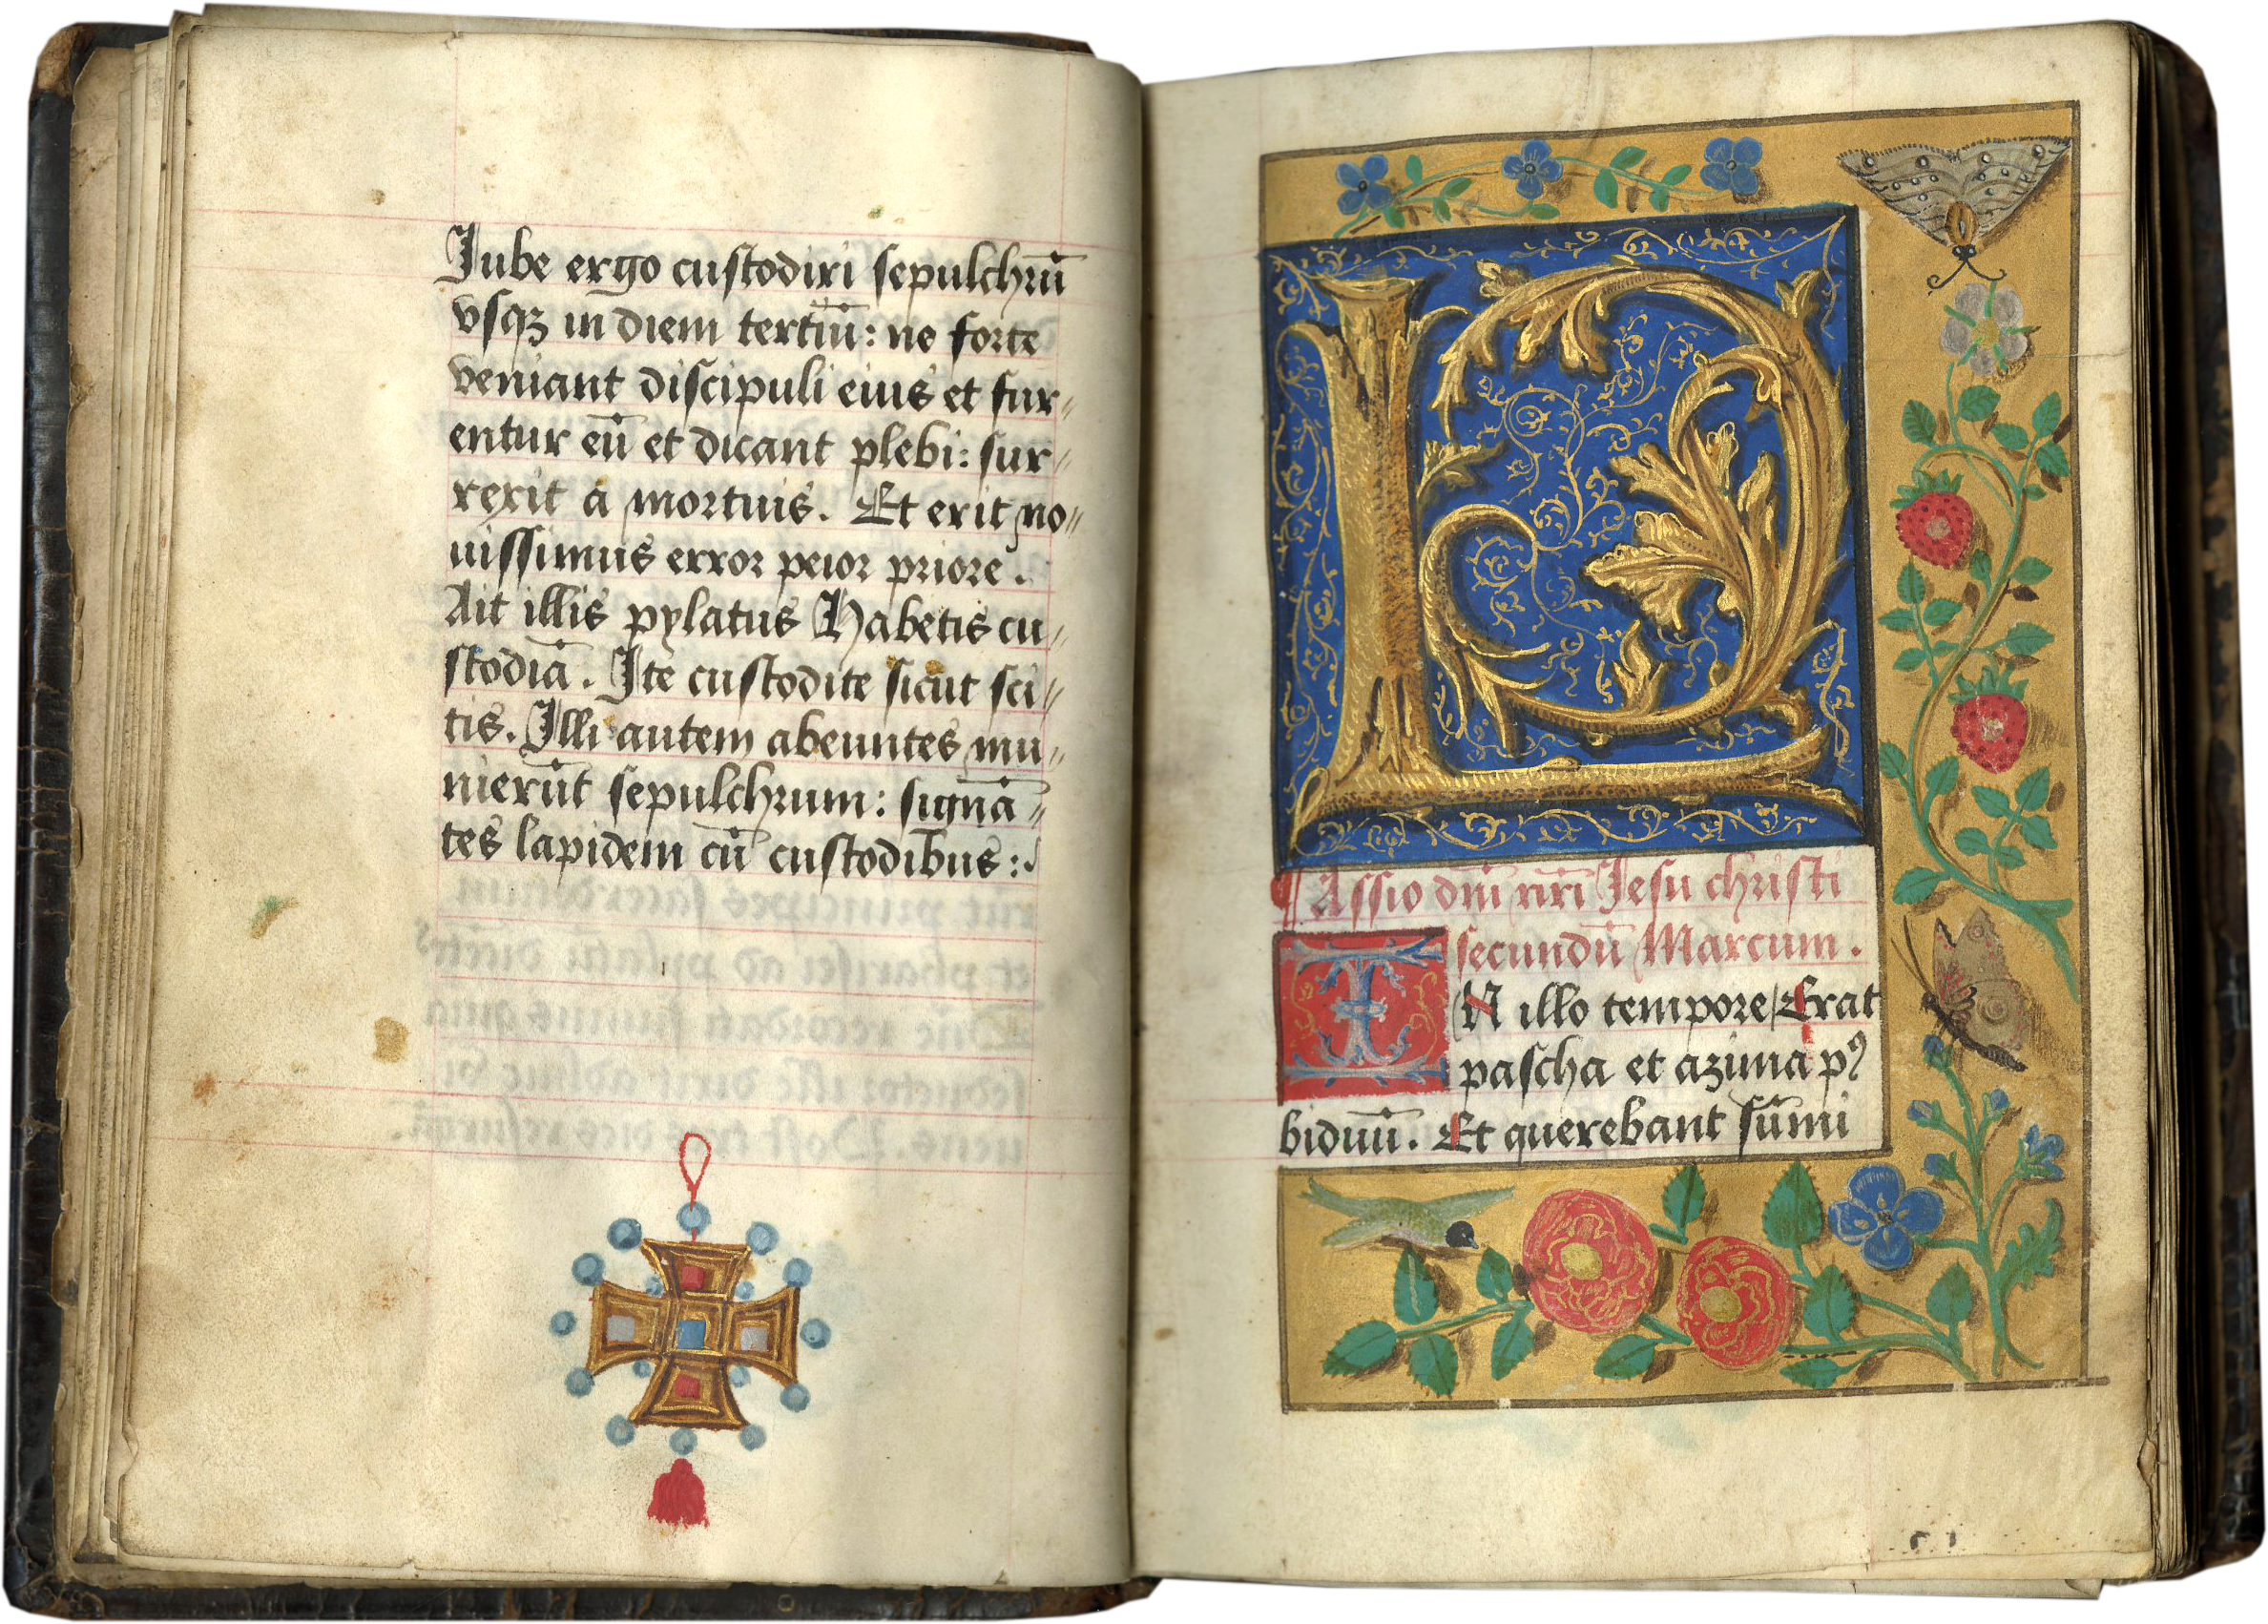 Jube ergo custodiri sepulchrū
vsqꝫ in diem tertiū: ne forte
veniant discipuli eius et fur⸗
entur eū et dicant plebi: sur⸗
rexit a mortuis. Et erit no⸗
uissimus error peior priore.
Ait illis pylatus Habetis cu⸗
stodiā. Ite custodite sicut sci⸗
tis. Illi autem abeuntes mu⸗
nierūt sepulchrum: signā⸗
tes lapidem cū custodibus:.
P
Assio dn̄i nr̄i Jesu christi
secundū Marcum.
IN illo tempore Erat
pascha et azima pꝰ
biduū. Et querebant sūmi